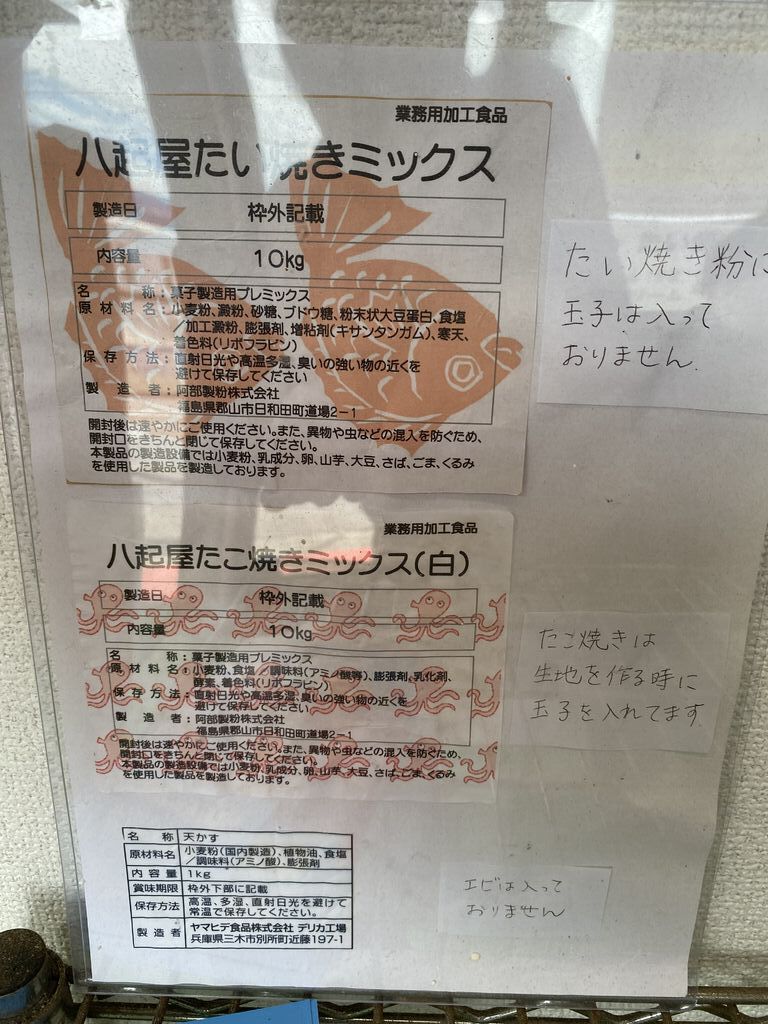 業務用加工食品
八起屋たい焼きミックス
製造日 枠外記載
内容量 10kg
名 称：菓子製造用プレミックス
原材料名：小麦粉、澱粉、砂糖、ブドウ糖、粉末状大豆蛋白、食塩
／加工澱粉、膨張剤、増粘剤(キサンタンガム)、寒天、
着色料(リボフラビン)
保存方法：直射日光や高温多湿、臭いの強い物の近くを
避けて保存してください
製造者：阿部製粉株式会社
福島県郡山市日和田町道場2－1
開封後は速やかにご使用ください。また、異物や虫などの混入を防ぐため、
開封口をきちんと閉じて保存してください。
本製品の製造設備では小麦粉、乳成分、卵、山芋、大豆、さば、ごま、くるみ
を使用した製品を製造しております。
たい焼き粉に
玉子は入って
おりません。
業務用加工食品
八起屋たこ焼きミックス(白)
製造日 枠外記載
内容量 10kg
名 称：菓子製造用プレミックス
原材料名：小麦粉、食塩／調味料(アミノ酸等)、膨張剤、乳化剤、
酵素、着色料(リボフラビン)
保存方法：直射日光や高温多湿、臭いの強い物の近くを
避けて保存してください
製造者：阿部製粉株式会社
福島県郡山市日和田町道場2－1
開封後は速やかにご使用ください。また、異物や虫などの混入を防ぐため、
開封口をきちんと閉じて保存してください。
本製品の製造設備では小麦粉、乳成分、卵、山芋、大豆、さば、ごま、くるみ
を使用した製品を製造しております。
たこ焼きは
生地を作る時に
玉子を入れてます。
名称 天かす
原材料名 小麦粉(国内製造)、植物油、食塩
／調味料(アミノ酸)、膨張剤
内容量 1kg
賞味期限 枠外下部に記載
保存方法 高温、多湿、直射日光を避けて
常温で保存してください。
製造者 ヤマヒデ食品株式会社 デリカ工場
兵庫県三木市別所町近藤197-1
エビは入って
おりません